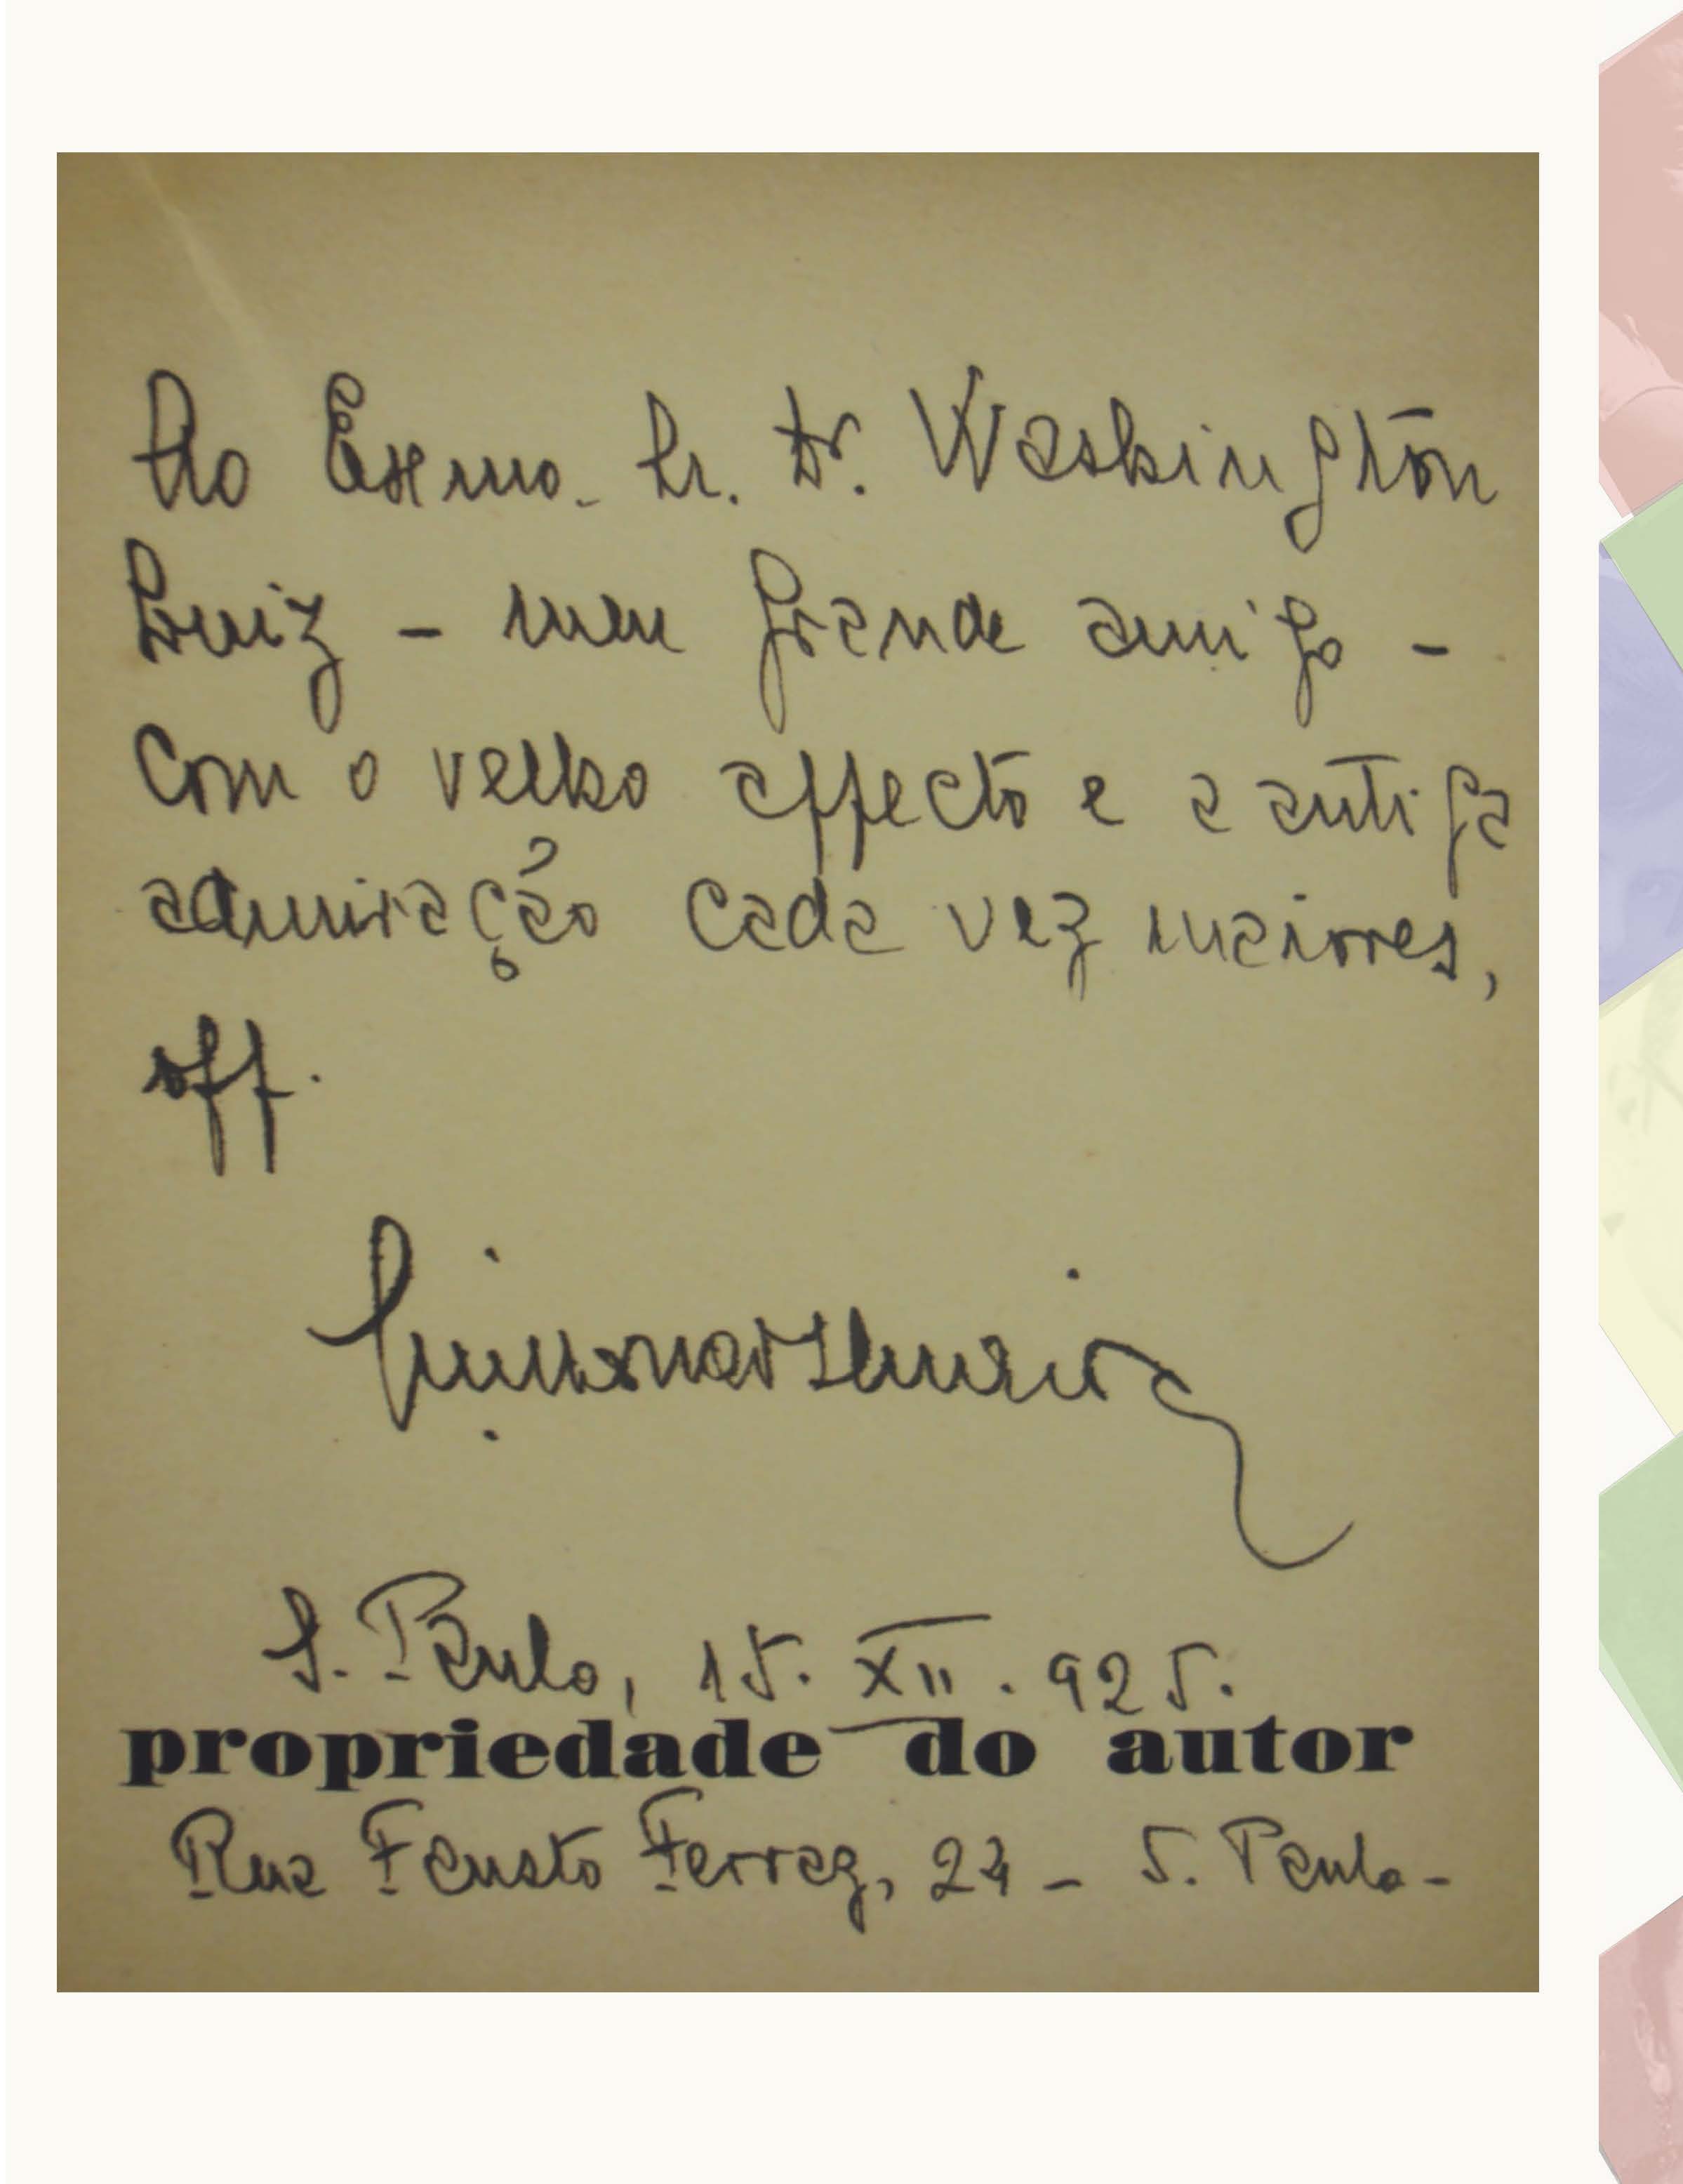 Ao Exmo. Sr. Dr. Washington
Luiz - meu grande amigo -
Com o velho affecto e a antiga
admiração cada vez maiores,
off.
S. Paulo, 15. XII. 925.
propriedade do autor
Rua Fausto Ferraz, 24 - S. Paulo -